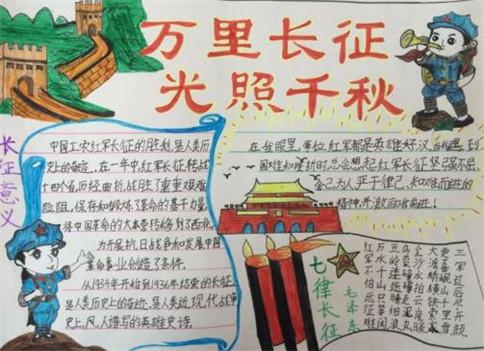 万里长征
光照千秋
长征意义
中国工农红军长征的胜利,是人类历
史上的奇迹。在一年中,红军长征转战
十四个省,历经曲折,战胜了重重艰难
险阻,保存和锻炼了革命的基干力量,
将中国革命的大本营转移到了西北,
为开展抗日战争和发展中国
革命事业创造了条件。
从1934年开始到1936年结束的长征,
是人类历史上的奇迹,是人类近现代战争
史上,凡人谱写的英雄史诗。
在我眼里,每位红军都是英雄好汉,当我遇到
困难和挫折时总会想起红军长征坚强不屈,
舍己为人,严于律己,知难而进的
精神,并激励前进!
七律长征
毛泽东
红军不怕远征难
万水千山只等闲
五岭逶迤腾细浪
乌蒙磅礴走泥丸
金沙水拍云崖暖
大渡桥横铁索寒
更喜岷山千里雪
三军过后尽开颜